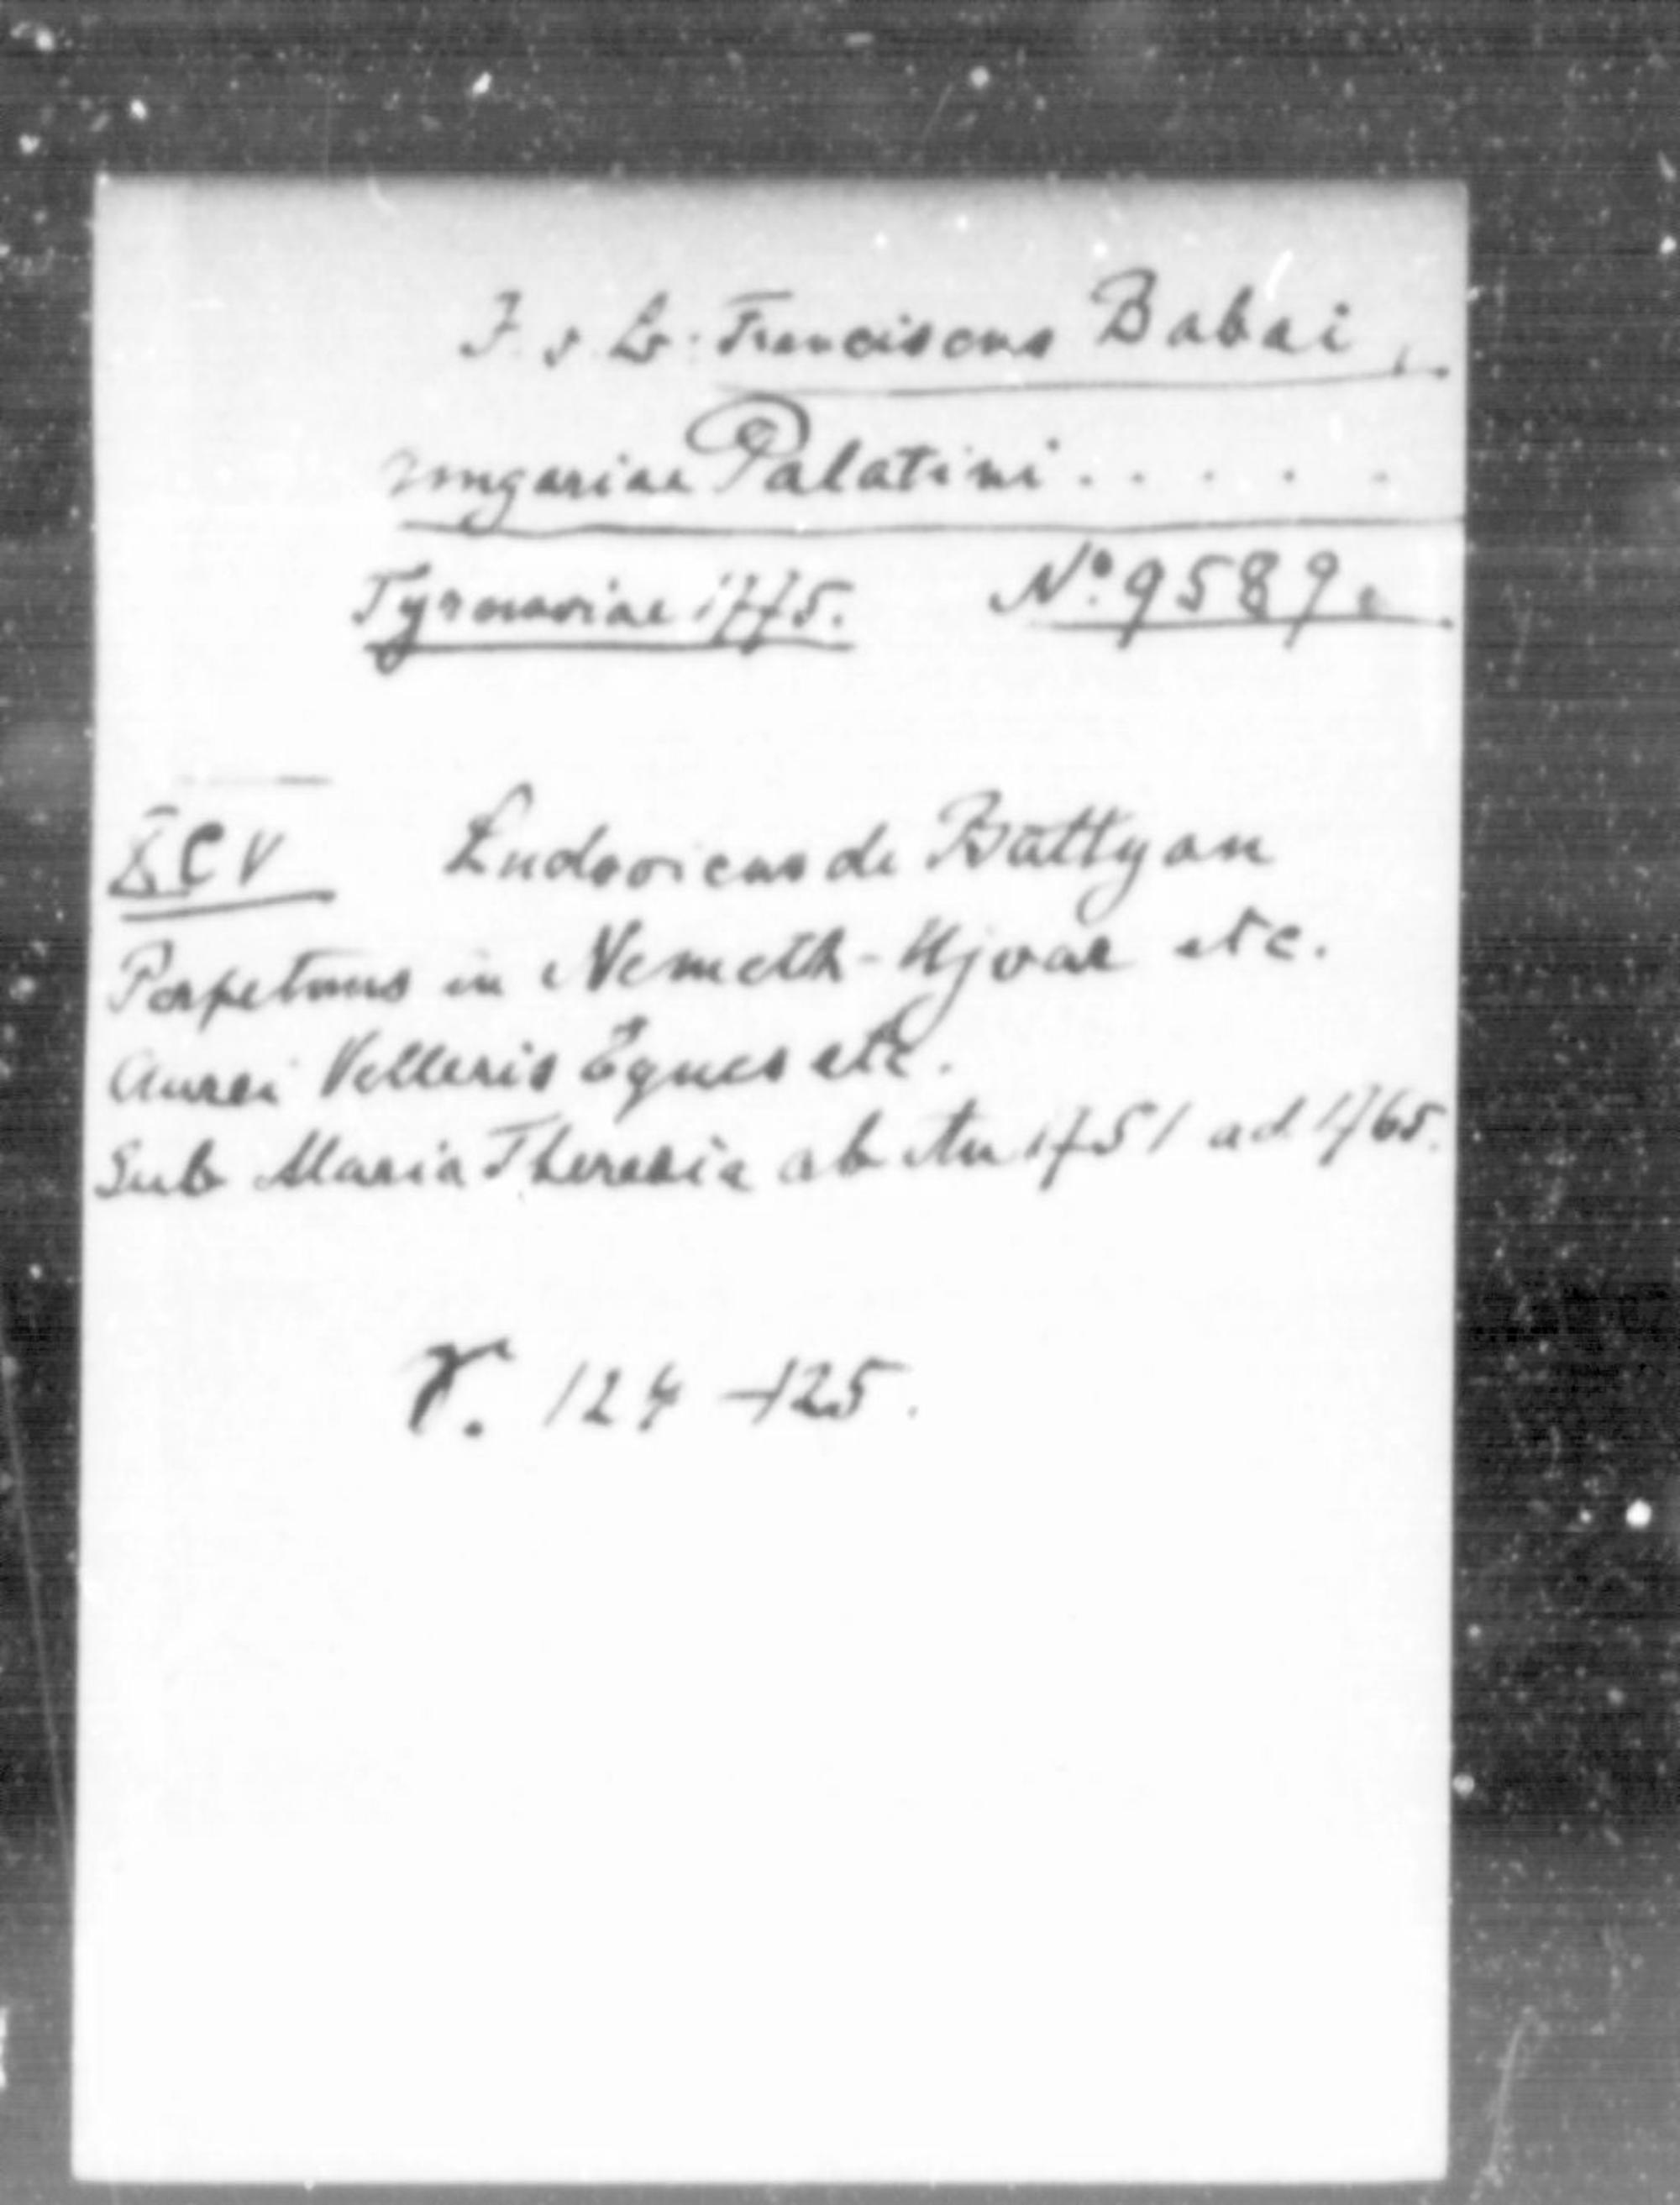 F. v. L. Franciscus Babai,
Ungariae Palatini . . . . .
Tyrnaviae 1775. No. 9589.
XCV Ludovicus de Battyan
Perpetuus in Nemeth-Ujvar etc.
Aurei Velleris Eques etc.
Sub Maria Theresia ab An 1751 ad 1765.
r. 124-125.